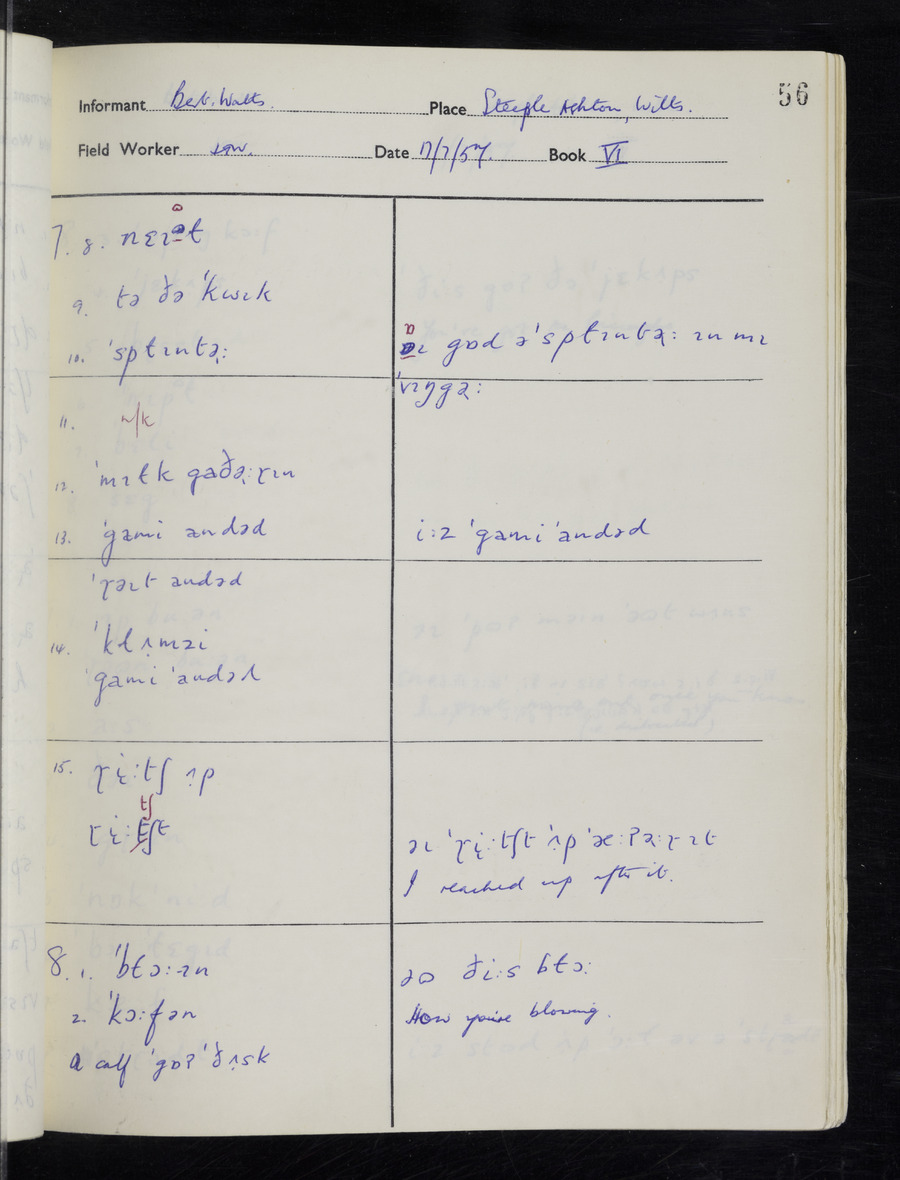 56
Informant Bert. Watts. Place Steeple Ashton, Wilts.
Field Worker Date 17/7/57. Book VI
7. 8. nɛɪət
ɒ
9. tə ðə ˈkwɪk
10. ˈsplɪntə̣:
ɪ gɒd əˈsplɪntə̣: ɪn mɪ
ˈvɪŋgə̣:
11. n/k
12. ˈmɪɫk gaðə̣:ɽɪn
13. ˈgami andəd
i:z ˈgami ˈandəd
ˈɽəɪt andəd
14. ˈkɫʌ̣mzi
ˈgami ˈandəd
15. ɽi̜:tʃ ʌp
tʃ
ɽi̜:tʃt
əɪ ˈɽi̜:tʃt ˈʌp ˈæ:ʔə̣:ɽ ɪt
I reached up after it.
8. 1. ˈblɔ:ɪn
ði:s blɔ:
2. ˈkɔ:fən
How you're blowing.
a calf ˈgɒʔ ˈðʌ̣sk